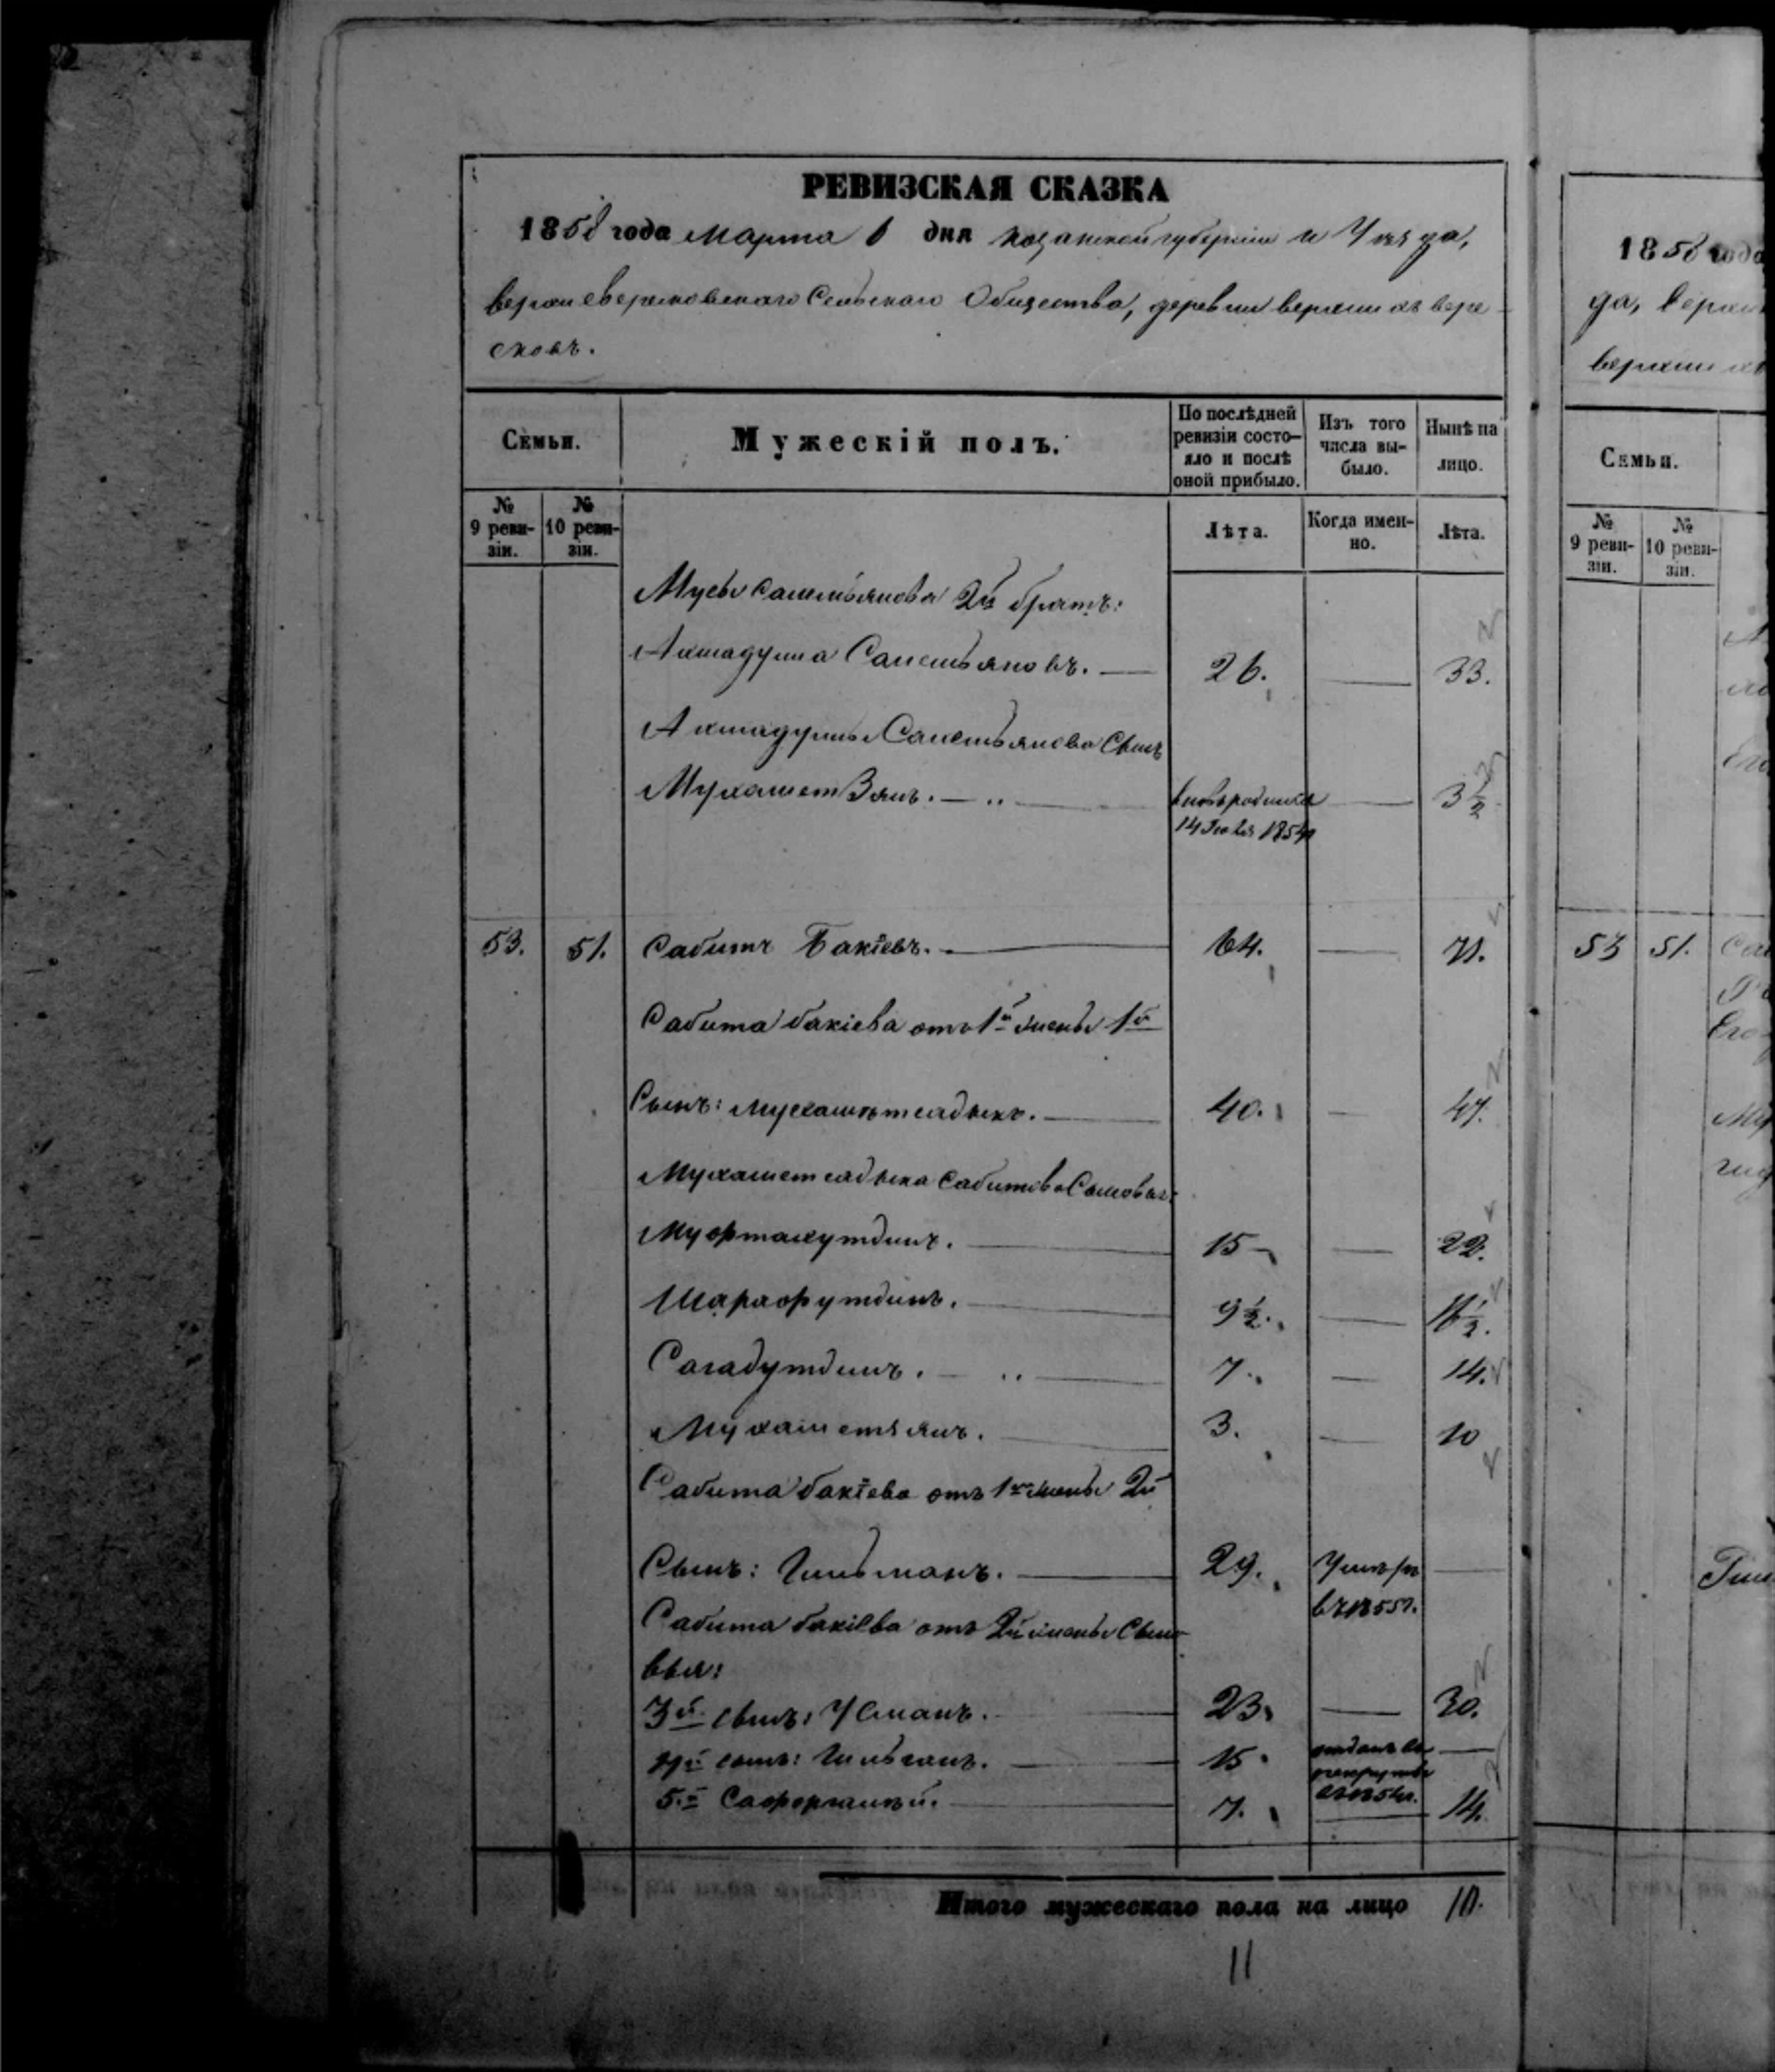 РЕВИЗСКАЯ СКАЗКА
1858 года Марта 6 дня Казанской губернии и Уезда,
верхневерезковскаго Сельскаго Общества, деревни верхнихъ вере-
сковъ.
Семьи.
Мужескій полъ.
По послѣдней
ревизіи состо-
яло и послѣ
оной прибыло.
Изъ того
числа вы-
было.
Нынѣ на
лицо.
№
9 реви-
зіи.
№
10 реви-
зіи.
Лѣта.
Когда имен-
но.
Лѣта.
Мусы 2й братъ:
Ахмадулла 26. 33.
Ахмадуллы Сынъ
МухаметЗянъ. вновь родился 3½
14 1854
53. 51. Сабитъ Бакіевъ. 64. 71.
Сабита бакіева отъ 1й жены 1й
Сынъ: Мухаметсадыкъ. 40. 47.
Мухаметсадыка Сабитова Сыновья:
Муфтахутдинъ. 15 22.
Шарафутдинъ. 9½. 16½.
Сагадутдинъ. 7. 14.
Мухаметзянъ. 3. 10
Сабита бакіева отъ 1й жены 2й
Сынъ: Гильманъ. 29. Умеръ
въ 1855г.
Сабита бакіева отъ 2й жены Сыно-
вья:
3й сынъ: Усманъ. 23. 30.
4й сынъ: 15. отданъ въ
рекруты
5й 7. 14.
Итого мужескаго пола на лицо 10.
11
1858 года
да, верхн
верхнихъ
Семьи.
№
9 реви-
зіи.
№
10 реви-
зіи.
53 51.